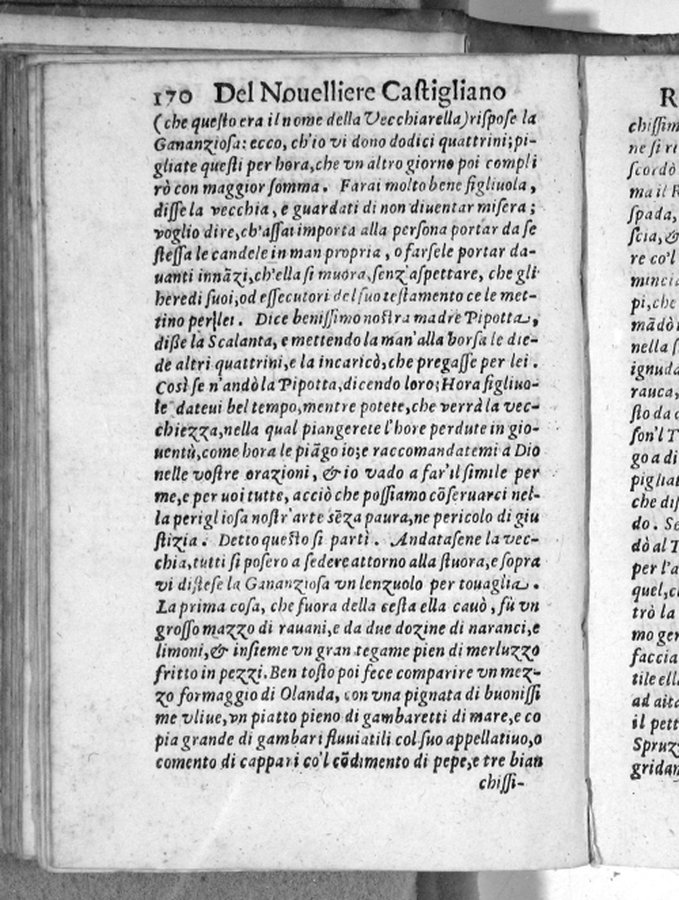 170 Del Nouelliere Castigliano
(che questo era il nome della Vecchiarella) rispose la
Gananziosa: ecco, ch'io vi dono dodici quattrini; pi-
gliate questi per hora, che vn altro giorno poi compli
rò con maggior somma. Farai molto bene figliuola,
disse la vecchia, e guardati di non diuentar misera;
voglio dire, ch'assai importa alla persona portar da se
stessa le candele in man propria, o farsele portar da-
uanti innāzi, ch'ella si muora, senz'aspettare, che gli
heredi suoi, od essecutori del suo testamento ce le met-
tino per lei. Dice benissimo nostra madre Pipotta,
disse la Scalanta, e mettendo la man'alla borsa le die-
de altri quattrini, e la incaricò, che pregasse per lei.
Così se n'andò la Pipotta, dicendo loro; Hora figliuo-
le dateui bel tempo, mentre potete, che verrà la vec-
chiezza, nella qual piangerete l'hore perdute in gio-
uentù, come hora le piāgo io; e raccomandatemi a Dio
nelle vostre orazioni, & io vado a far'il simile per
me, e per uoi tutte, acciò che possiamo cōseruarci nel-
la perigliosa nostr'arte sēza paura, ne pericolo di giu
stizia. Detto questo si partì. Andatasene la vec-
chia, tutti si posero a sedere attorno alla stuora, e sopra
vi distese la Gananziosa vn lenzuolo per touaglia.
La prima cosa, che fuora della cesta ella cauò, fù vn
grosso mazzo di rauani, e da due dozine di naranci, e
limoni, & insieme vn gran tegame pien di merluzzo
fritto in pezzi. Ben tosto poi fece comparire vn mez-
zo formaggio di Olanda, con vna pignata di buonissi
me vliue, vn piatto pieno di gambaretti di mare, e co
pia grande di gambari fluuiatili col suo appellatiuo, o
comento di cappari co'l cōdimento di pepe, e tre bian
chissi-
R
chissim
ne si ri
scordò
ma il R
spada,
scia, &
re co'l
mincia
pi, che
mādò
nella s
ignuda
rauca,
sto da
son'l T
go a di
pigliat
che dis
do. Se
dò al T
per l'a
quel, c
trò la
mo gen
faccia
tile ell
ad aita
il pett
Spruzz
gridan